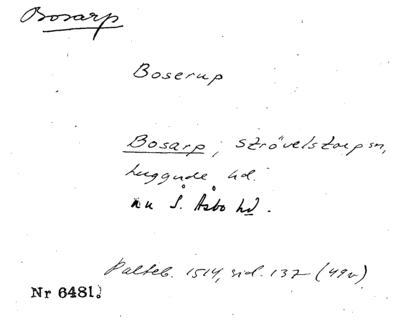 Bosarp
Boserup
Bosarp, Strövelstorp sn,
Luggude hd.
nu S. Åsbo hd.
Palteb. 1514, sid. 137 (49v)
Nr 6481.